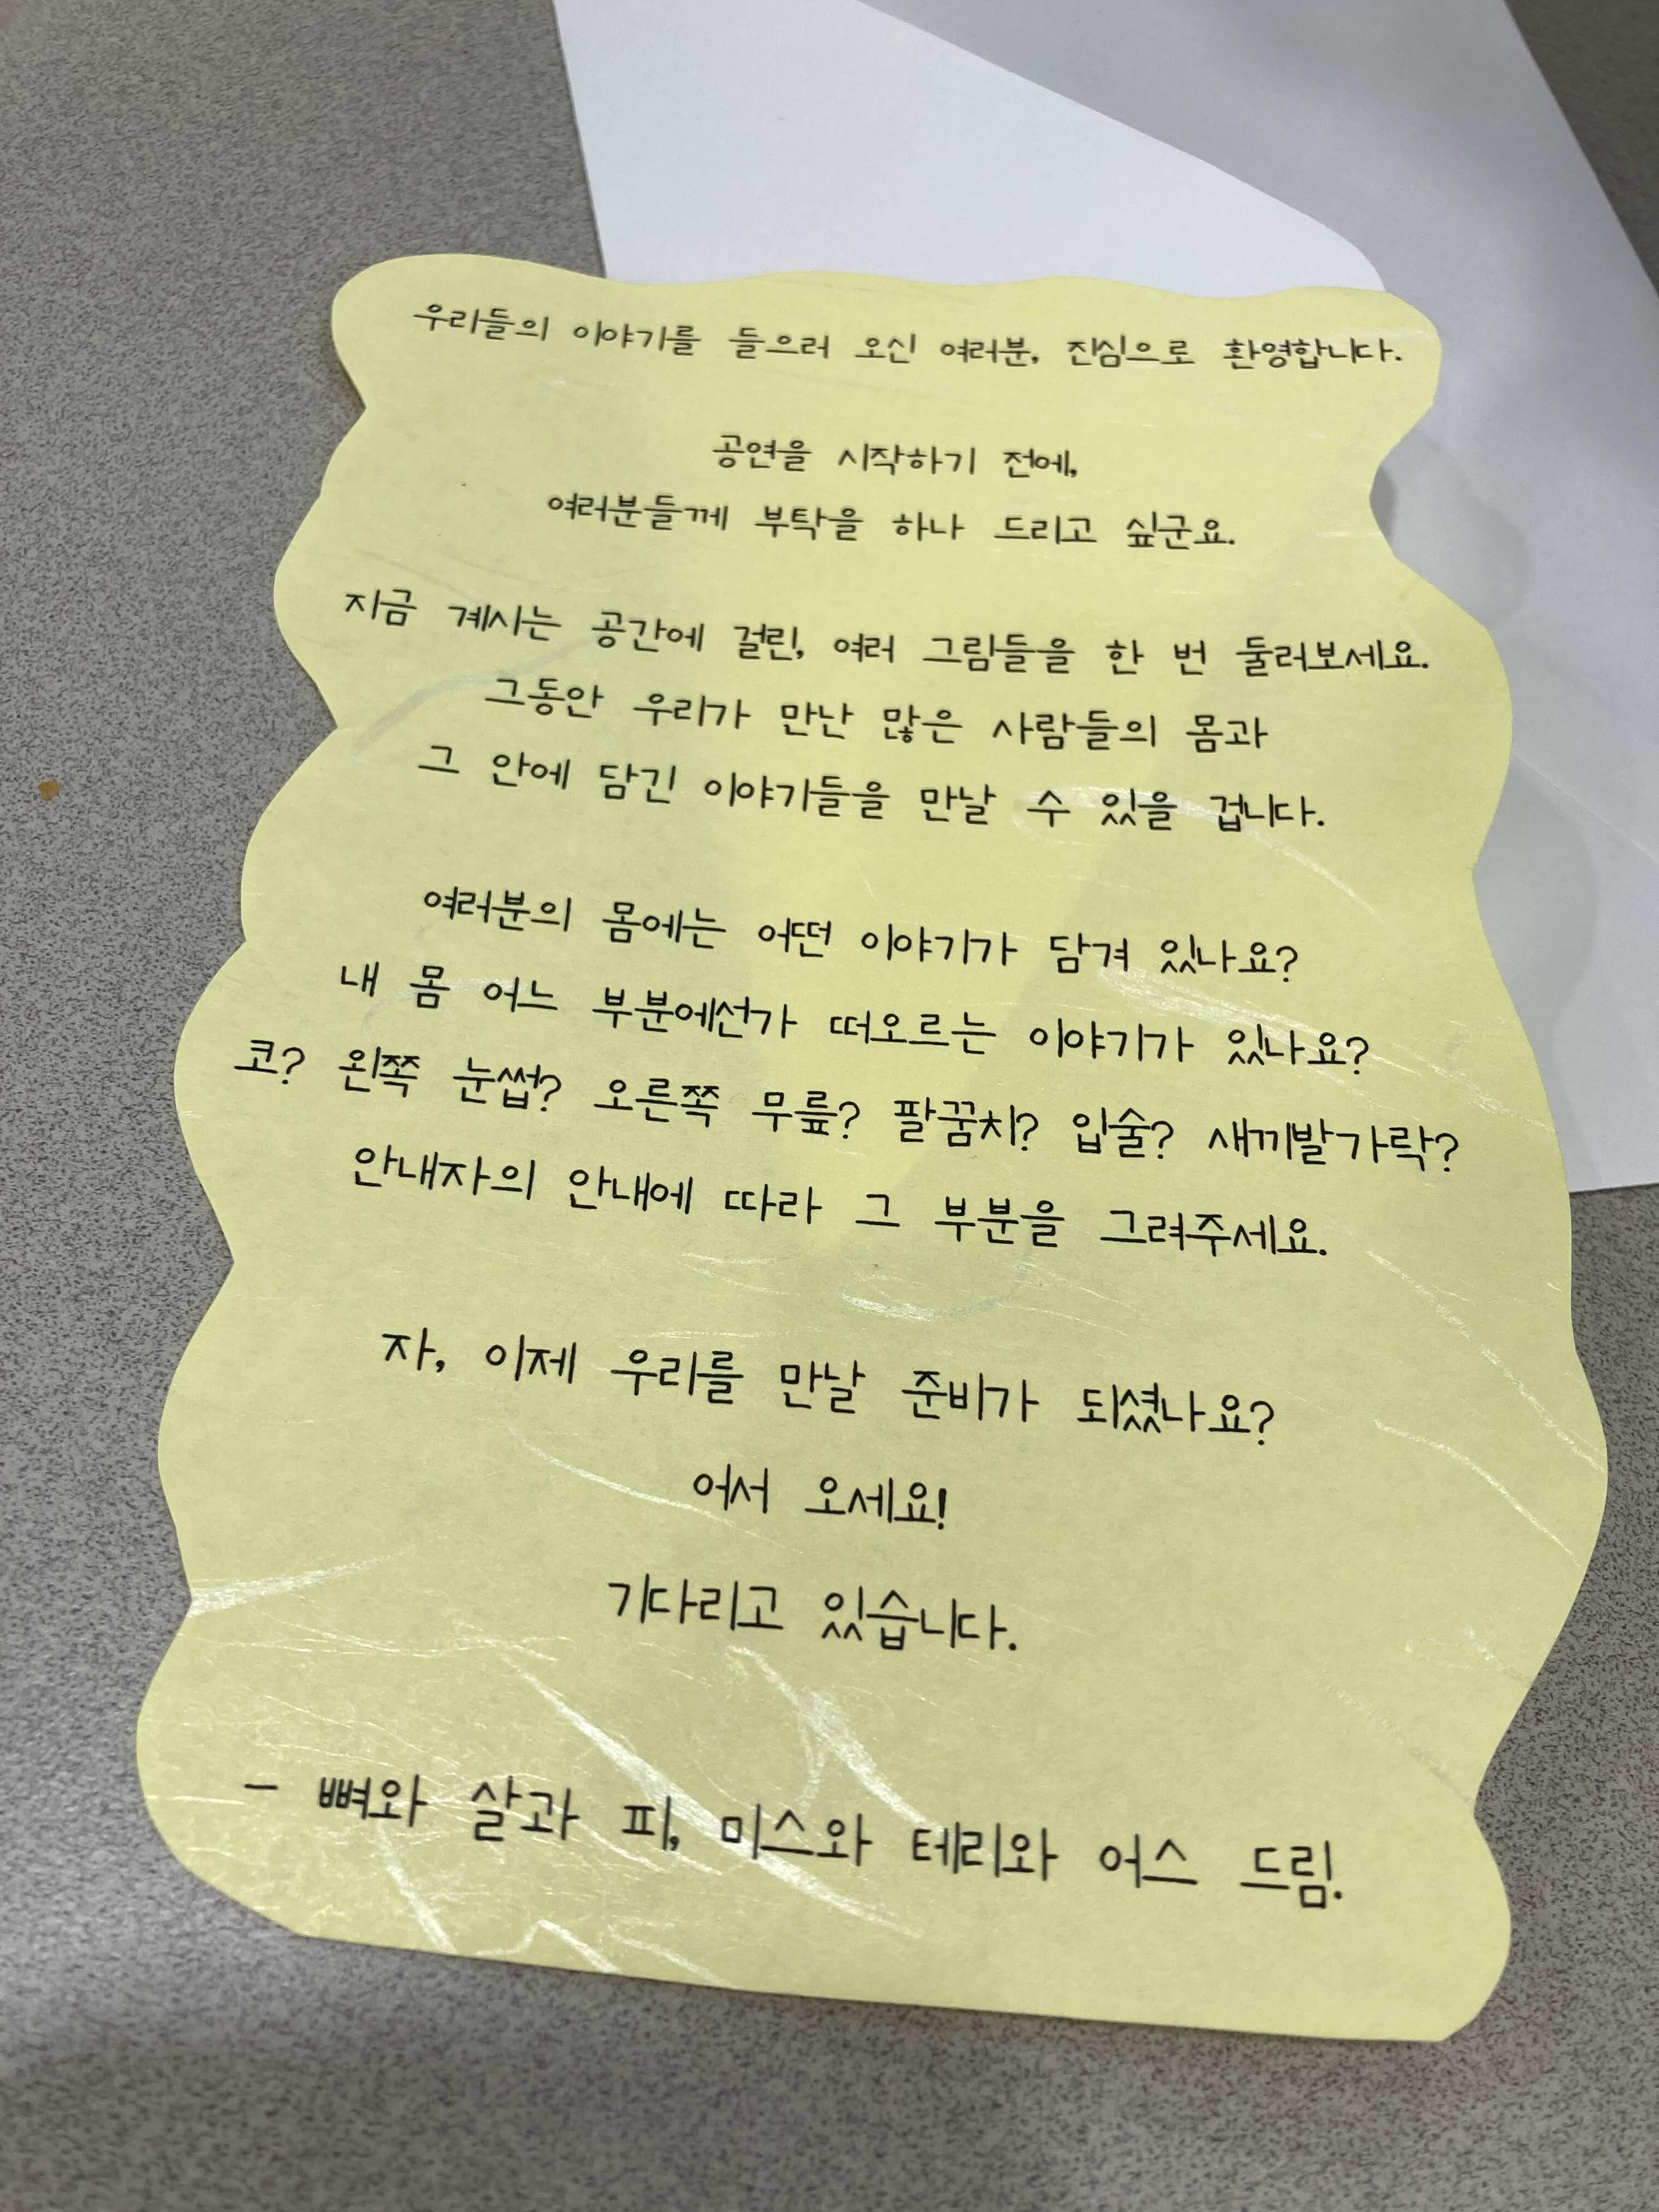 우리들의 이야기를 들으러 오신 여러분, 진심으로 환영합니다.
공연을 시작하기 전에,
여러분들께 부탁을 하나 드리고 싶군요.
지금 계시는 공간에 걸린, 여러 그림들을 한 번 둘러보세요.
그동안 우리가 만난 많은 사람들의 몸과
그 안에 담긴 이야기들을 만날 수 있을 겁니다.
여러분의 몸에는 어떤 이야기가 담겨 있나요?
내 몸 어느 부분에선가 떠오르는 이야기가 있나요?
코? 왼쪽 눈썹? 오른쪽 무릎? 팔꿈치? 입술? 새끼발가락?
안내자의 안내에 따라 그 부분을 그려주세요.
자, 이제 우리를 만날 준비가 되셨나요?
어서 오세요!
기다리고 있습니다.
- 뼈와 살과 피, 미스와 테리와 어스 드림.